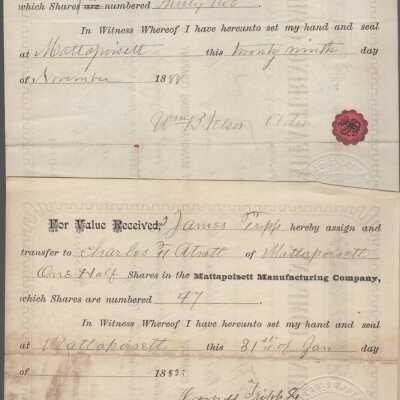 which Shares are numbered
In Witness Whereof I have hereunto set my hand and seal
at Mattapoisett this twenty ninth day
of November 1888
For Value Received, I James Tripp hereby assign and
transfer to Charles H Atsatt of Mattapoisett
One Half Shares in the Mattapoisett Manufacturing Company,
which Shares are numbered 47.
In Witness Whereof I have hereunto set my hand and seal
at Mattapoisett this 31st of Jan day
of 188
James Tripp